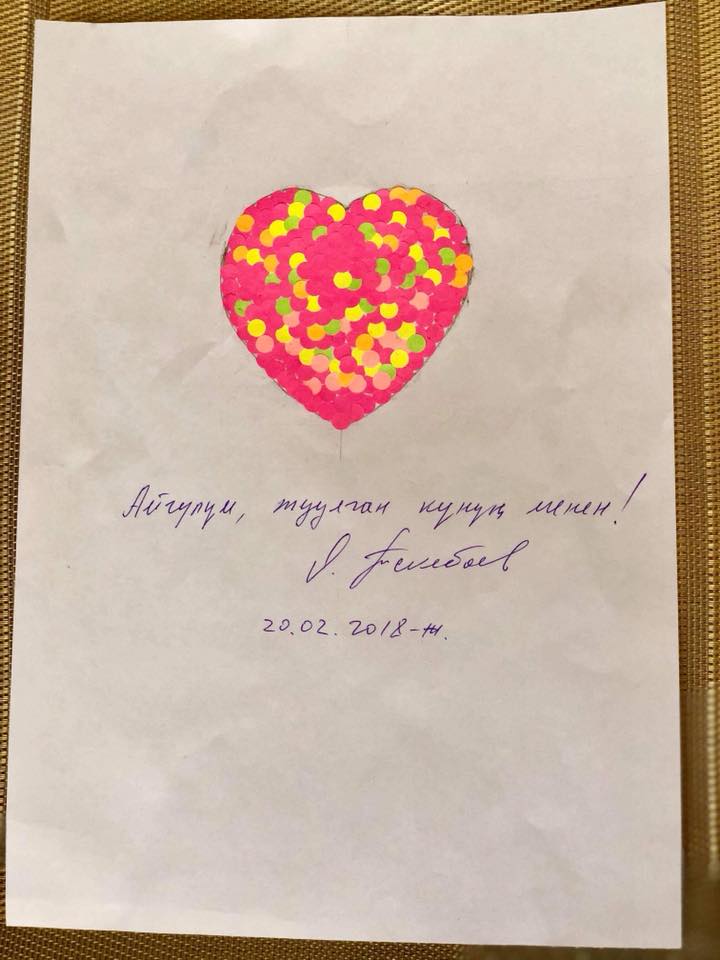 Айгүлүм, туулган күнүң менен!
Ө. Текебаев
20.02.2018-ж.